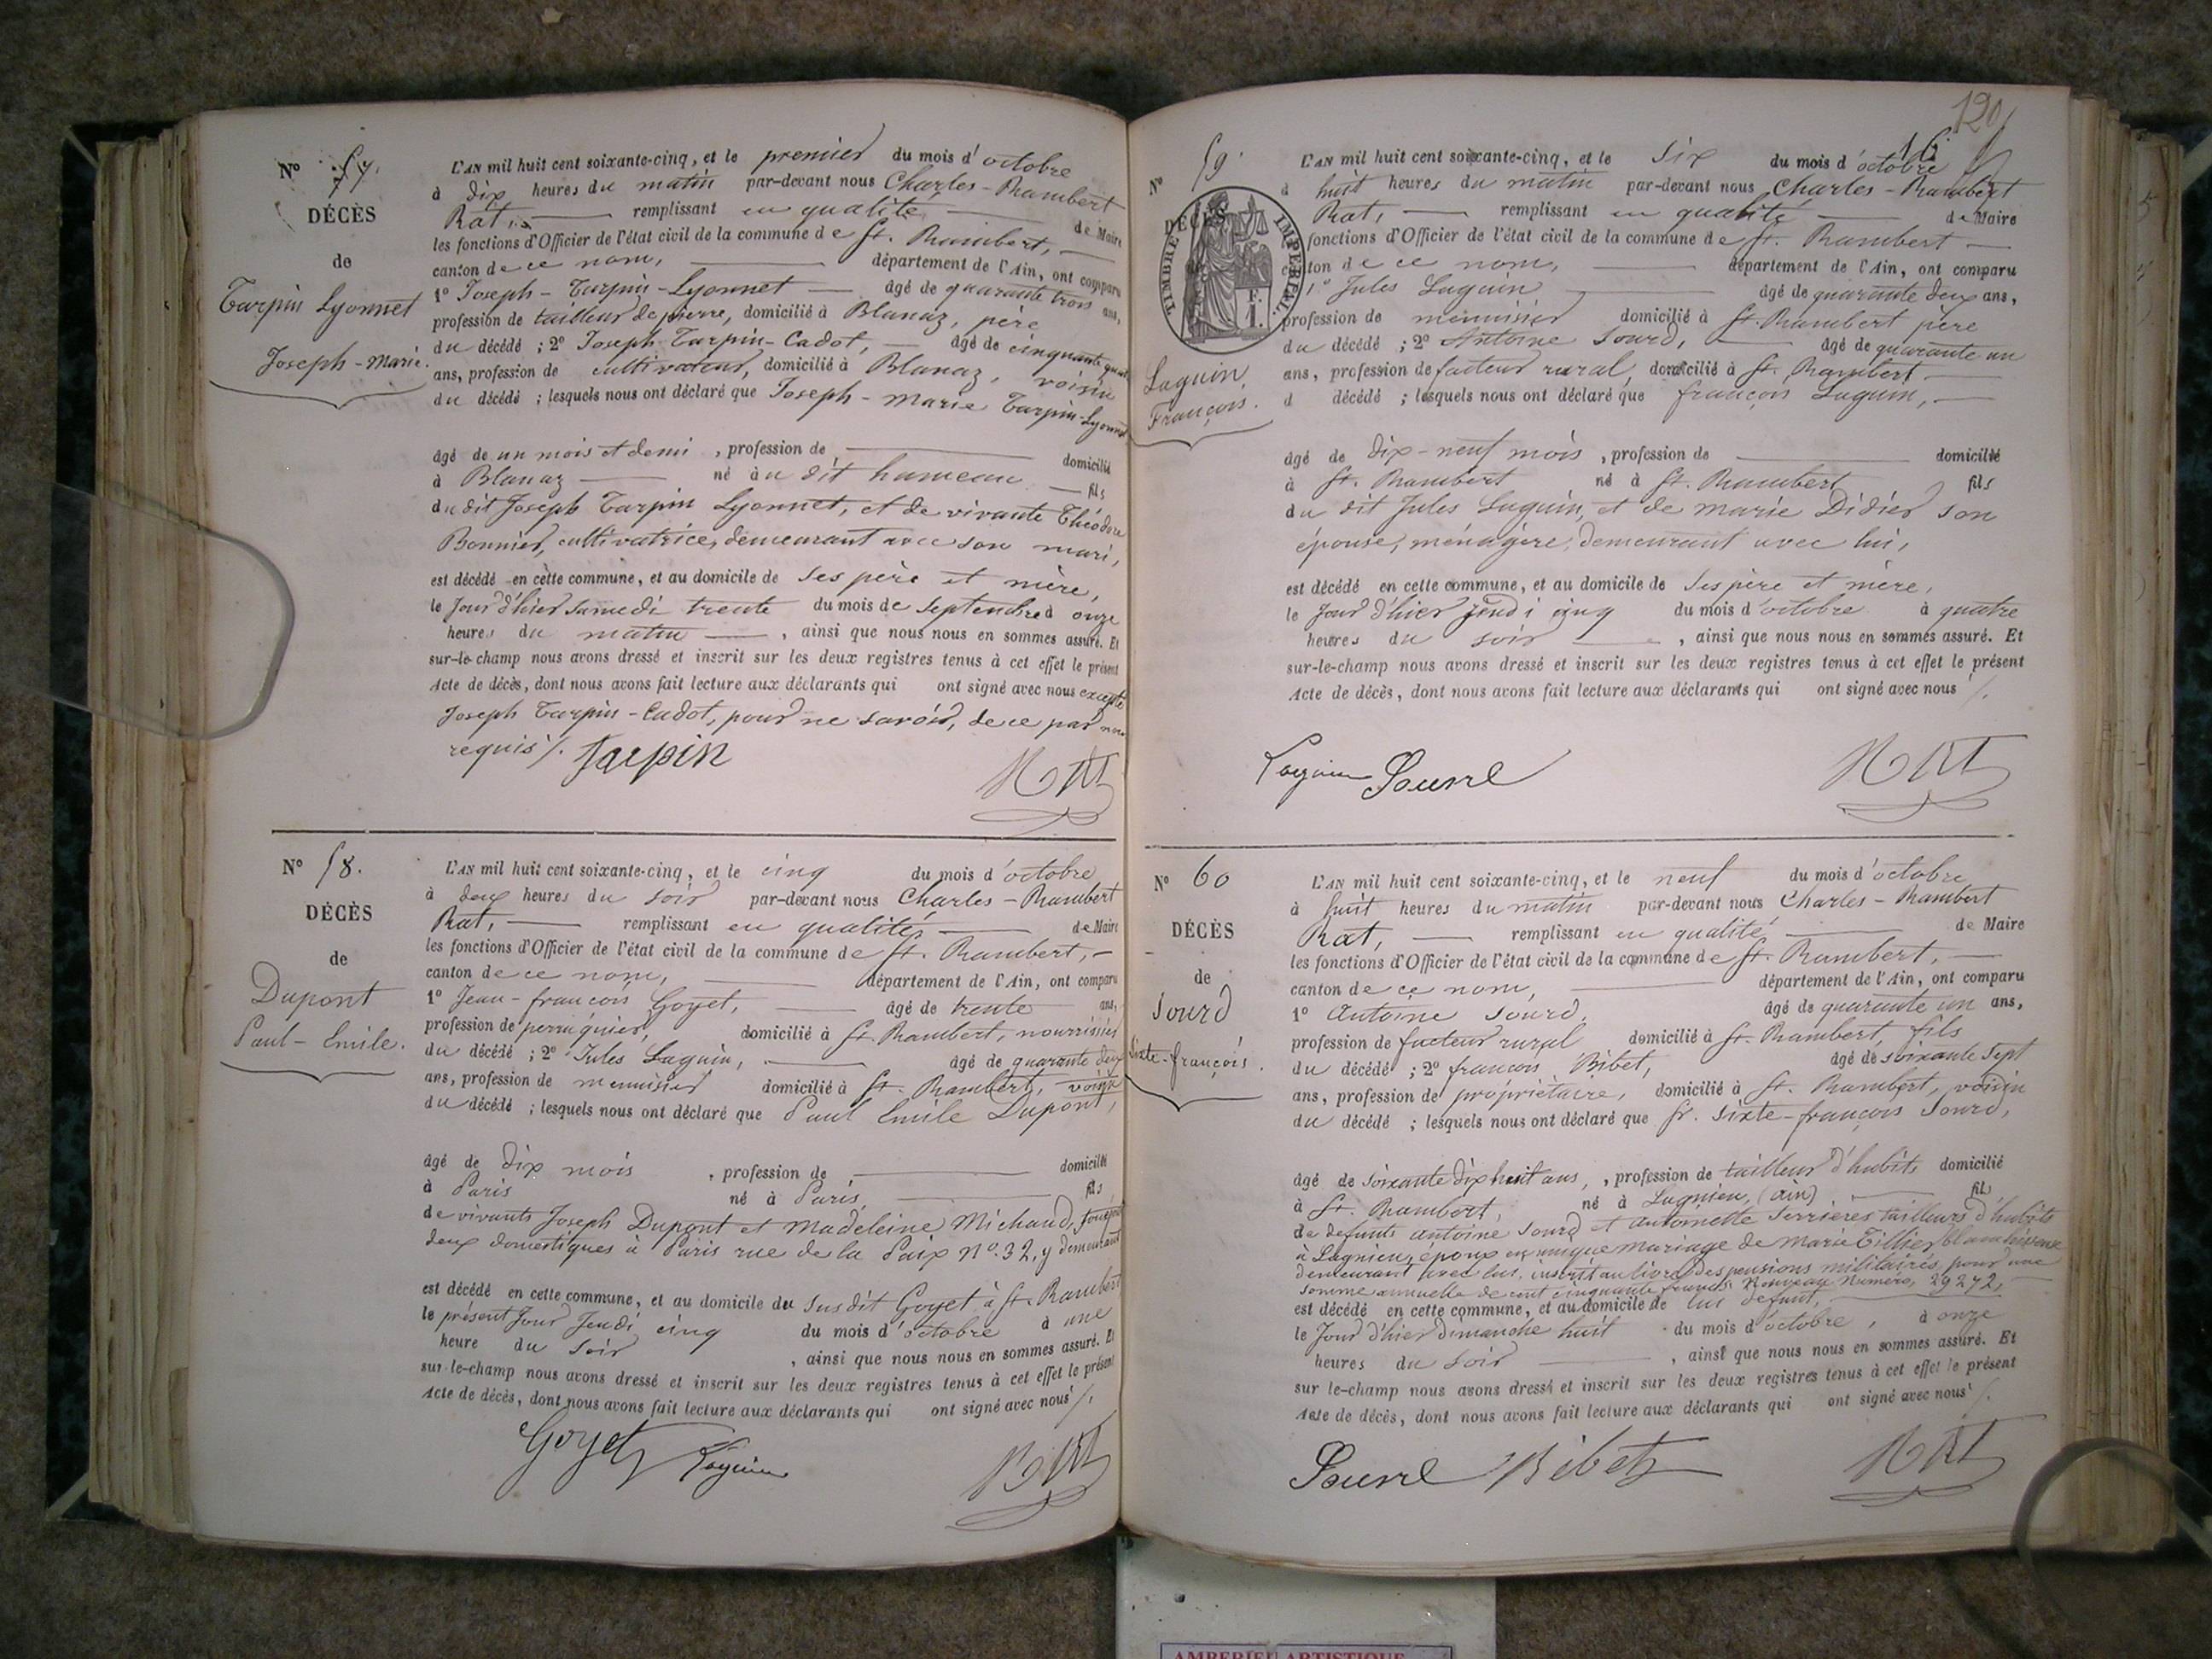 N° 57.
DÉCÈS
de
Tarpin Lyonnet
Joseph-Marie.
L'AN mil huit cent soixante-cinq, et le premier du mois d'octobre
à dix heures du matin par-devant nous Charles-Rambert
Rat, remplissant en qualité de Maire
les fonctions d'Officier de l'état civil de la commune de St. Rambert,
canton de ce nom, département de l'Ain, ont comparu
1° Joseph-Tarpin-Lyonnet âgé de quarante trois ans,
profession de tailleur de pierre, domicilié à Blanaz, père
du décédé ; 2° Joseph Tarpin-Cadot, âgé de cinquante quatre
ans, profession de cultivateur, domicilié à Blanaz, voisin
du décédé ; lesquels nous ont déclaré que Joseph-Marie Tarpin-Lyonnet
âgé de un mois et demi, profession de domicilié
à Blanaz né à u dit hameau fils
du dit Joseph Tarpin Lyonnet, et de vivante Théodore
Bonnier, cultivatrice, demeurant avec son mari,
est décédé en cette commune, et au domicile de ses père et mère,
le jour d'hier samedi trente du mois de septembre à onze
heures du matin, ainsi que nous nous en sommes assuré. Et
sur-le-champ nous avons dressé et inscrit sur les deux registres tenus à cet effet le présent
Acte de décès, dont nous avons fait lecture aux déclarants qui ont signé avec nous excepté
Joseph Tarpin-Cadot, pour ne savoir, de ce par nous
requis /.
Tarpin
Rat
N° 58.
DÉCÈS
de
Dupont
Paul-Emile.
L'AN mil huit cent soixante-cinq, et le cinq du mois d'octobre
à deux heures du soir par-devant nous Charles-Rambert
Rat, remplissant en qualité de Maire
les fonctions d'Officier de l'état civil de la commune de St. Rambert,
canton de ce nom, département de l'Ain, ont comparu
1° Jean-françois Goyet, âgé de trente ans,
profession de perruquier, domicilié à St. Rambert, nourrisier
du décédé ; 2° Jules Laguin, âgé de quarante deux
ans, profession de menuisier domicilié à St. Rambert, voisin
du décédé ; lesquels nous ont déclaré que Paul Emile Dupont,
âgé de dix mois, profession de domicilié
à Paris né à Paris, fils
de vivants Joseph Dupont et Madeleine Michaud, tous
deux domestiques à Paris rue de la Paix N°. 32, y demeurant
est décédé en cette commune, et au domicile du susdit Goyet à St. Rambert
le présent jour jeudi cinq du mois d'octobre à une
heure du soir, ainsi que nous nous en sommes assuré. Et
sur-le-champ nous avons dressé et inscrit sur les deux registres tenus à cet effet le présent
Acte de décès, dont nous avons fait lecture aux déclarants qui ont signé avec nous /.
Goyet Laguin
Rat
120
16
N° 59.
DÉCÈS
TIMBRE IMPÉRIAL.
F.
1.
Laguin,
François.
L'AN mil huit cent soixante-cinq, et le six du mois d'octobre
à huit heures du matin par-devant nous Charles-Rambert
Rat, remplissant en qualité de Maire
fonctions d'Officier de l'état civil de la commune de St. Rambert
canton de ce nom, département de l'Ain, ont comparu
1° Jules Laguin âgé de quarante deux ans,
profession de menuisier domicilié à St. Rambert père
du décédé ; 2° Antoine Sourd, âgé de quarante un
ans, profession de facteur rural, domicilié à St. Rambert
d décédé ; lesquels nous ont déclaré que françois Laguin,
âgé de dix-neuf mois, profession de domicilié
à St. Rambert né à St. Rambert fils
du dit Jules Laguin, et de Marie Didier son
épouse, ménagère, demeurant avec lui,
est décédé en cette commune, et au domicile de ses père et mère,
le jour d'hier jeudi cinq du mois d'octobre à quatre
heures du soir, ainsi que nous nous en sommes assuré. Et
sur-le-champ nous avons dressé et inscrit sur les deux registres tenus à cet effet le présent
Acte de décès, dont nous avons fait lecture aux déclarants qui ont signé avec nous /.
Laguin Sourd
Rat
N° 60
DÉCÈS
de
Sourd
Sixte-françois.
L'AN mil huit cent soixante-cinq, et le neuf du mois d'octobre
à huit heures du matin par-devant nous Charles-Rambert
Rat, remplissant en qualité de Maire
les fonctions d'Officier de l'état civil de la commune de St. Rambert,
canton de ce nom, département de l'Ain, ont comparu
1° Antoine Sourd, âgé de quarante un ans,
profession de facteur rural domicilié à St. Rambert, fils
du décédé ; 2° françois Bibet, âgé de soixante sept
ans, profession de propriétaire, domicilié à St. Rambert, voisin
du décédé ; lesquels nous ont déclaré que Sr. Sixte-françois Sourd,
âgé de soixante dix huit ans, profession de tailleur d'habits domicilié
à St. Rambert, né à Lagnieu, (Ain) fils
de défunts antoine Sourd et antoinette Serrières tailleurs d'habits
à Lagnieu, époux en unique mariage de Marie Tillier
demeurant avec lui, inscrit au livre des pensions militaires, pour une
somme annuelle de cent cinquante francs. Nouveau Numéro, 29272,
est décédé en cette commune, et au domicile de lui défunt,
le jour d'hier dimanche huit du mois d'octobre, à onze
heures du soir, ainsi que nous nous en sommes assuré. Et
sur le-champ nous avons dressé et inscrit sur les deux registres tenus à cet effet le présent
Acte de décès, dont nous avons fait lecture aux déclarants qui ont signé avec nous /.
Sourd Bibet
Rat
AMBERIEU ARTISTIQUE